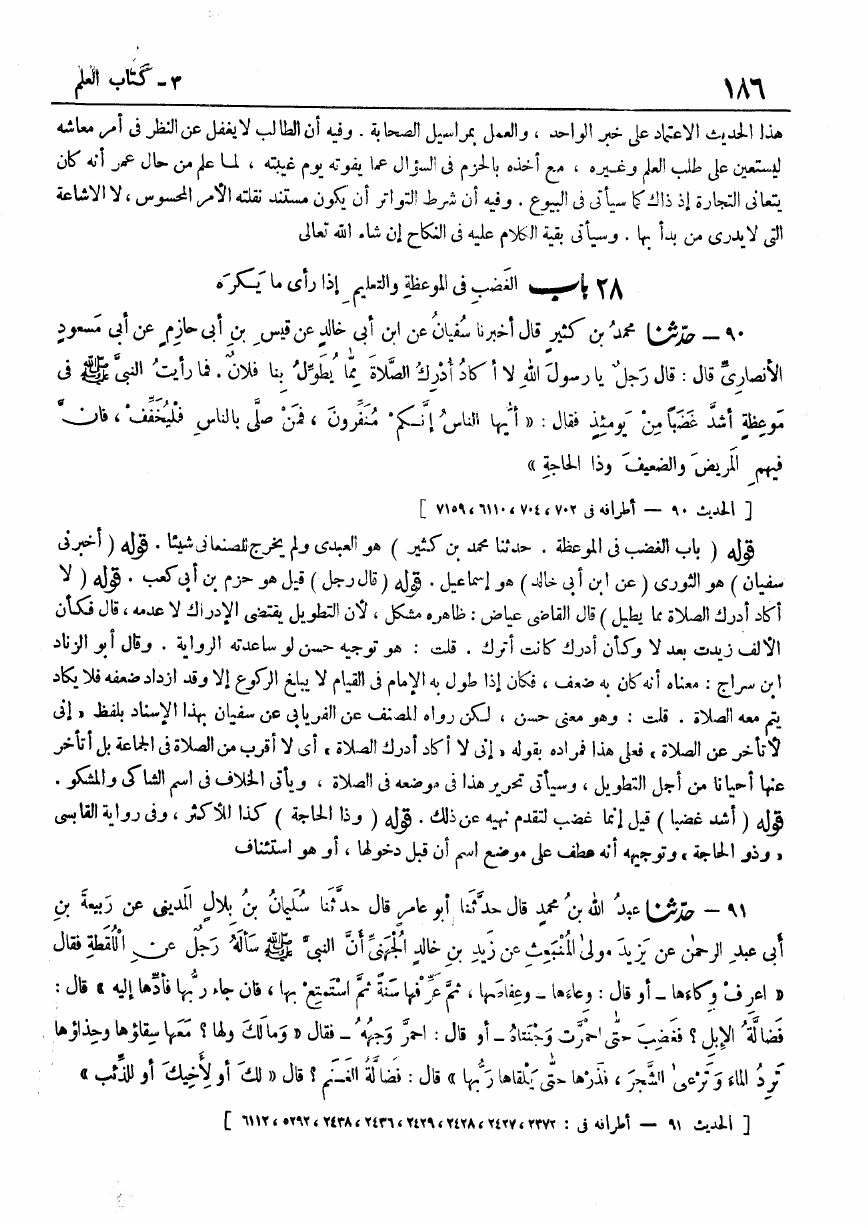 ١٨٦
٣ - كتاب العلم
هذا الحديث الاعتماد على خبر الواحد ، والعمل بمراسيل الصحابة . وفيه أن الطالب لا يغفل عن النظر فى أمر معاشه
ليستعين على طلب العلم وغيره ، مع أخذه بالحزم فى السؤال عما يفوته يوم غيبته ، لما علم من حال عمر أنه كان
يتعانى التجارة إذ ذاك كما سيأتى فى البيوع . وفيه أن شرط التواتر أن يكون مستند نقلته الأمر المحسوس ، لا الاشاعة
التى لا يدرى من بدأ بها . وسيأتى بقية الكلام عليه فى النكاح إن شاء الله تعالى
٢٨ باب الغَضبِ فى الموعظةِ والتعليمِ إذا رأى ما يَكرَه
٩٠ — حدّثنا محمدُ بن كثيرٍ قال أخبرنا سُفيانُ عن ابن أبى خالدٍ عن قيسِ بنِ أبى حازمٍ عن أبى مَسعودٍ
الأنصارىِّ قال : قال رَجلٌ يا رسولَ اللهِ لا أكادُ أُدْرِكُ الصَّلاةَ مِمَّا يُطَوِّلُ بِنا فلانٌ . فما رأيتُ النبىَّ ﷺ فى
مَوعِظةٍ أشدَّ غَضَباً مِنْ يَومئِذٍ فقال : « أيُّها الناسُ إنَّكمْ مُنَفِّرونَ ، فمَنْ صلَّى بالناسِ فلْيُخَفِّفْ ، فانَّ
فيهمِ المَريضَ والضعيفَ وذا الحاجةِ »
[ الحديث ٩٠ — أطرافه فى ٧٠٢ ، ٧٠٤ ، ٦١١٠ ، ٧١٥٩ ]
قوله ( باب الغضب فى الموعظة . حدثنا محمد بن كثير ) هو العبدى ولم يخرج للصنعانى شيئا . قوله ( أخبرنى
سفيان ) هو الثورى ( عن ابن أبى خالد ) هو إسماعيل . قوله ( قال رجل ) قيل هو حزم بن أبى كعب . قوله ( لا
أكاد أدرك الصلاة مما يطيل ) قال القاضى عياض : ظاهره مشكل ، لأن التطويل يقتضى الإدراك لا عدمه ، قال فكأن
الألف زيدت بعد لا وكأن أدرك كانت أترك . قلت : هو توجيه حسن لو ساعدته الرواية . وقال أبو الزناد
ابن سراج : معناه أنه كان به ضعف ، فكان إذا طول به الإمام فى القيام لا يبلغ الركوع إلا وقد ازداد ضعفه فلا يكاد
يتم معه الصلاة . قلت : وهو معنى حسن ، لكن رواه المصنف عن الفريابى عن سفيان بهذا الإسناد بلفظ « إنى
لأتأخر عن الصلاة » فعلى هذا فمراده بقوله « إنى لا أكاد أدرك الصلاة » أى لا أقرب من الصلاة فى الجماعة بل أتأخر
عنها أحيانا من أجل التطويل ، وسيأتى تحرير هذا فى موضعه فى الصلاة ، ويأتى الخلاف فى اسم الشاكى والمشكو .
قوله ( أشد غضبا ) قيل إنما غضب لتقدم نهيه عن ذلك . قوله ( وذا الحاجة ) كذا للأكثر ، وفى رواية القابسى
« وذو الحاجة » وتوجيهه أنه عطف على موضع اسم أن قبل دخولها ، أو هو استئناف
٩١ — حدّثنا عبدُ الله بنُ محمدٍ قال حدَّثَنا أبو عامرٍ قال حدَّثَنا سُليمانُ بنُ بِلالٍ المَدينى عن رَبيعةَ بنِ
أبى عبدِ الرحمنِ عن يَزيدَ مولىٰ المُنبَعِثِ عن زَيدِ بنِ خالدٍ الجُهَنىِّ أنَّ النبىَّ ﷺ سَألَهُ رَجلٌ عنِ اللُّقَطةِ فقال
« اعرِفْ وِكاءَها ــ أو قال : وِعاءَها ــ وعِفاصَها ، ثمَّ عَرِّفْها سَنةً ثمَّ اسْتَمتِعْ بها ، فان جاء ربُّها فأدِّها إليه » قال :
فَضالَّةُ الإبلِ ؟ فغَضِبَ حتَّى احْمرَّت وَجْنَتاهُ ــ أو قال : احمرَّ وَجهُهُ ــ فقال « وَمالَكَ ولها ؟ مَعَها سِقاؤها وحِذاؤها
تَرِدُ الماءَ وَتَرعىٰ الشَّجرَ ، فذَرْها حتَّى يَلقاها رَبُّها » قال : فَضالَّةُ الغَنمِ ؟ قال « لكَ أو لأخيكَ أو للذِّئب »
[ الحديث ٩١ — أطرافه فى : ٢٣٧٢ ، ٢٤٢٧ ، ٢٤٢٨ ، ٢٤٢٩ ، ٢٤٣٦ ، ٢٤٣٨ ، ٥٢٩٢ ، ٦١١٢ ]